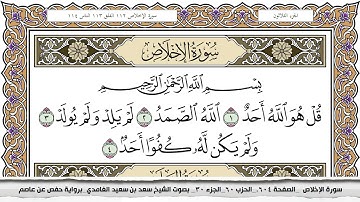 سورة الإخلاص ١١٢ الفلق ١١٣ الناس ١١٤
الجزء الثلاثون
سُورَةُ الإِخْلَاصِ
بِسْمِ اللَّهِ الرَّحْمَٰنِ الرَّحِيمِ
قُلْ هُوَ اللَّهُ أَحَدٌ ١ اللَّهُ الصَّمَدُ ٢ لَمْ يَلِدْ وَلَمْ يُولَدْ ٣
وَلَمْ يَكُن لَّهُ كُفُوًا أَحَدٌ ٤
سورة الإخلاص _ الصفحة ٦٠٤_ الحزب ٦٠_ الجزء ٣٠_ بصوت الشيخ سعد بن سعيد الغامدي _برواية حفص عن عاصم